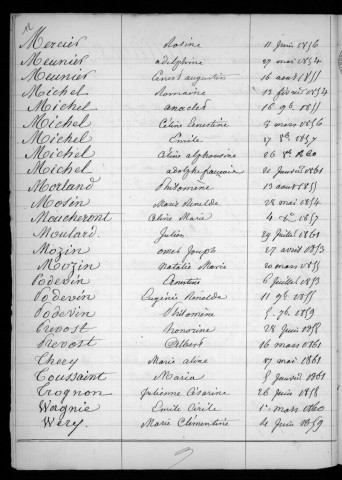 Mercier Rosine 11 Juin 1856
Meunier adelphine 29 mai 1854
Meunier Ernest augustin 16 aout 1855
Michel Romaine 13 février 1854
Michel anaclet 16 9b. 1855
Michel Céline Ernestine 8 mars 1856
Michel Emile 1857
Michel Céline alphonsine 26
Michel adolphe françois 21 Janvier 1861
Morland Philomène 13 aout 1855
Mosin Marie 28 mai 1854
Moucheront Céline Marie 4 1857
Moulard Julien 29 Juillet 1861
Mozin Joseph 27 avril 1853
Mozin Natalie Marie 20 mars 1855
Podevin 6 Juillet 1853
Podevin Eugénie 11 9b. 1855
Podevin Philomène 5 1859
Prevost honorine 28 Juin 1858
Prevost Albert 16 mars 1861
Thery Marie aline 17 mai 1861
Toussaint Maria 5 Janvier 1861
Trognon Julienne Césarine 26 Juin 1858
Wagnie Emile Cérile 1er mars 1860
Wéry Marie Clémentine 4 Juin 1859